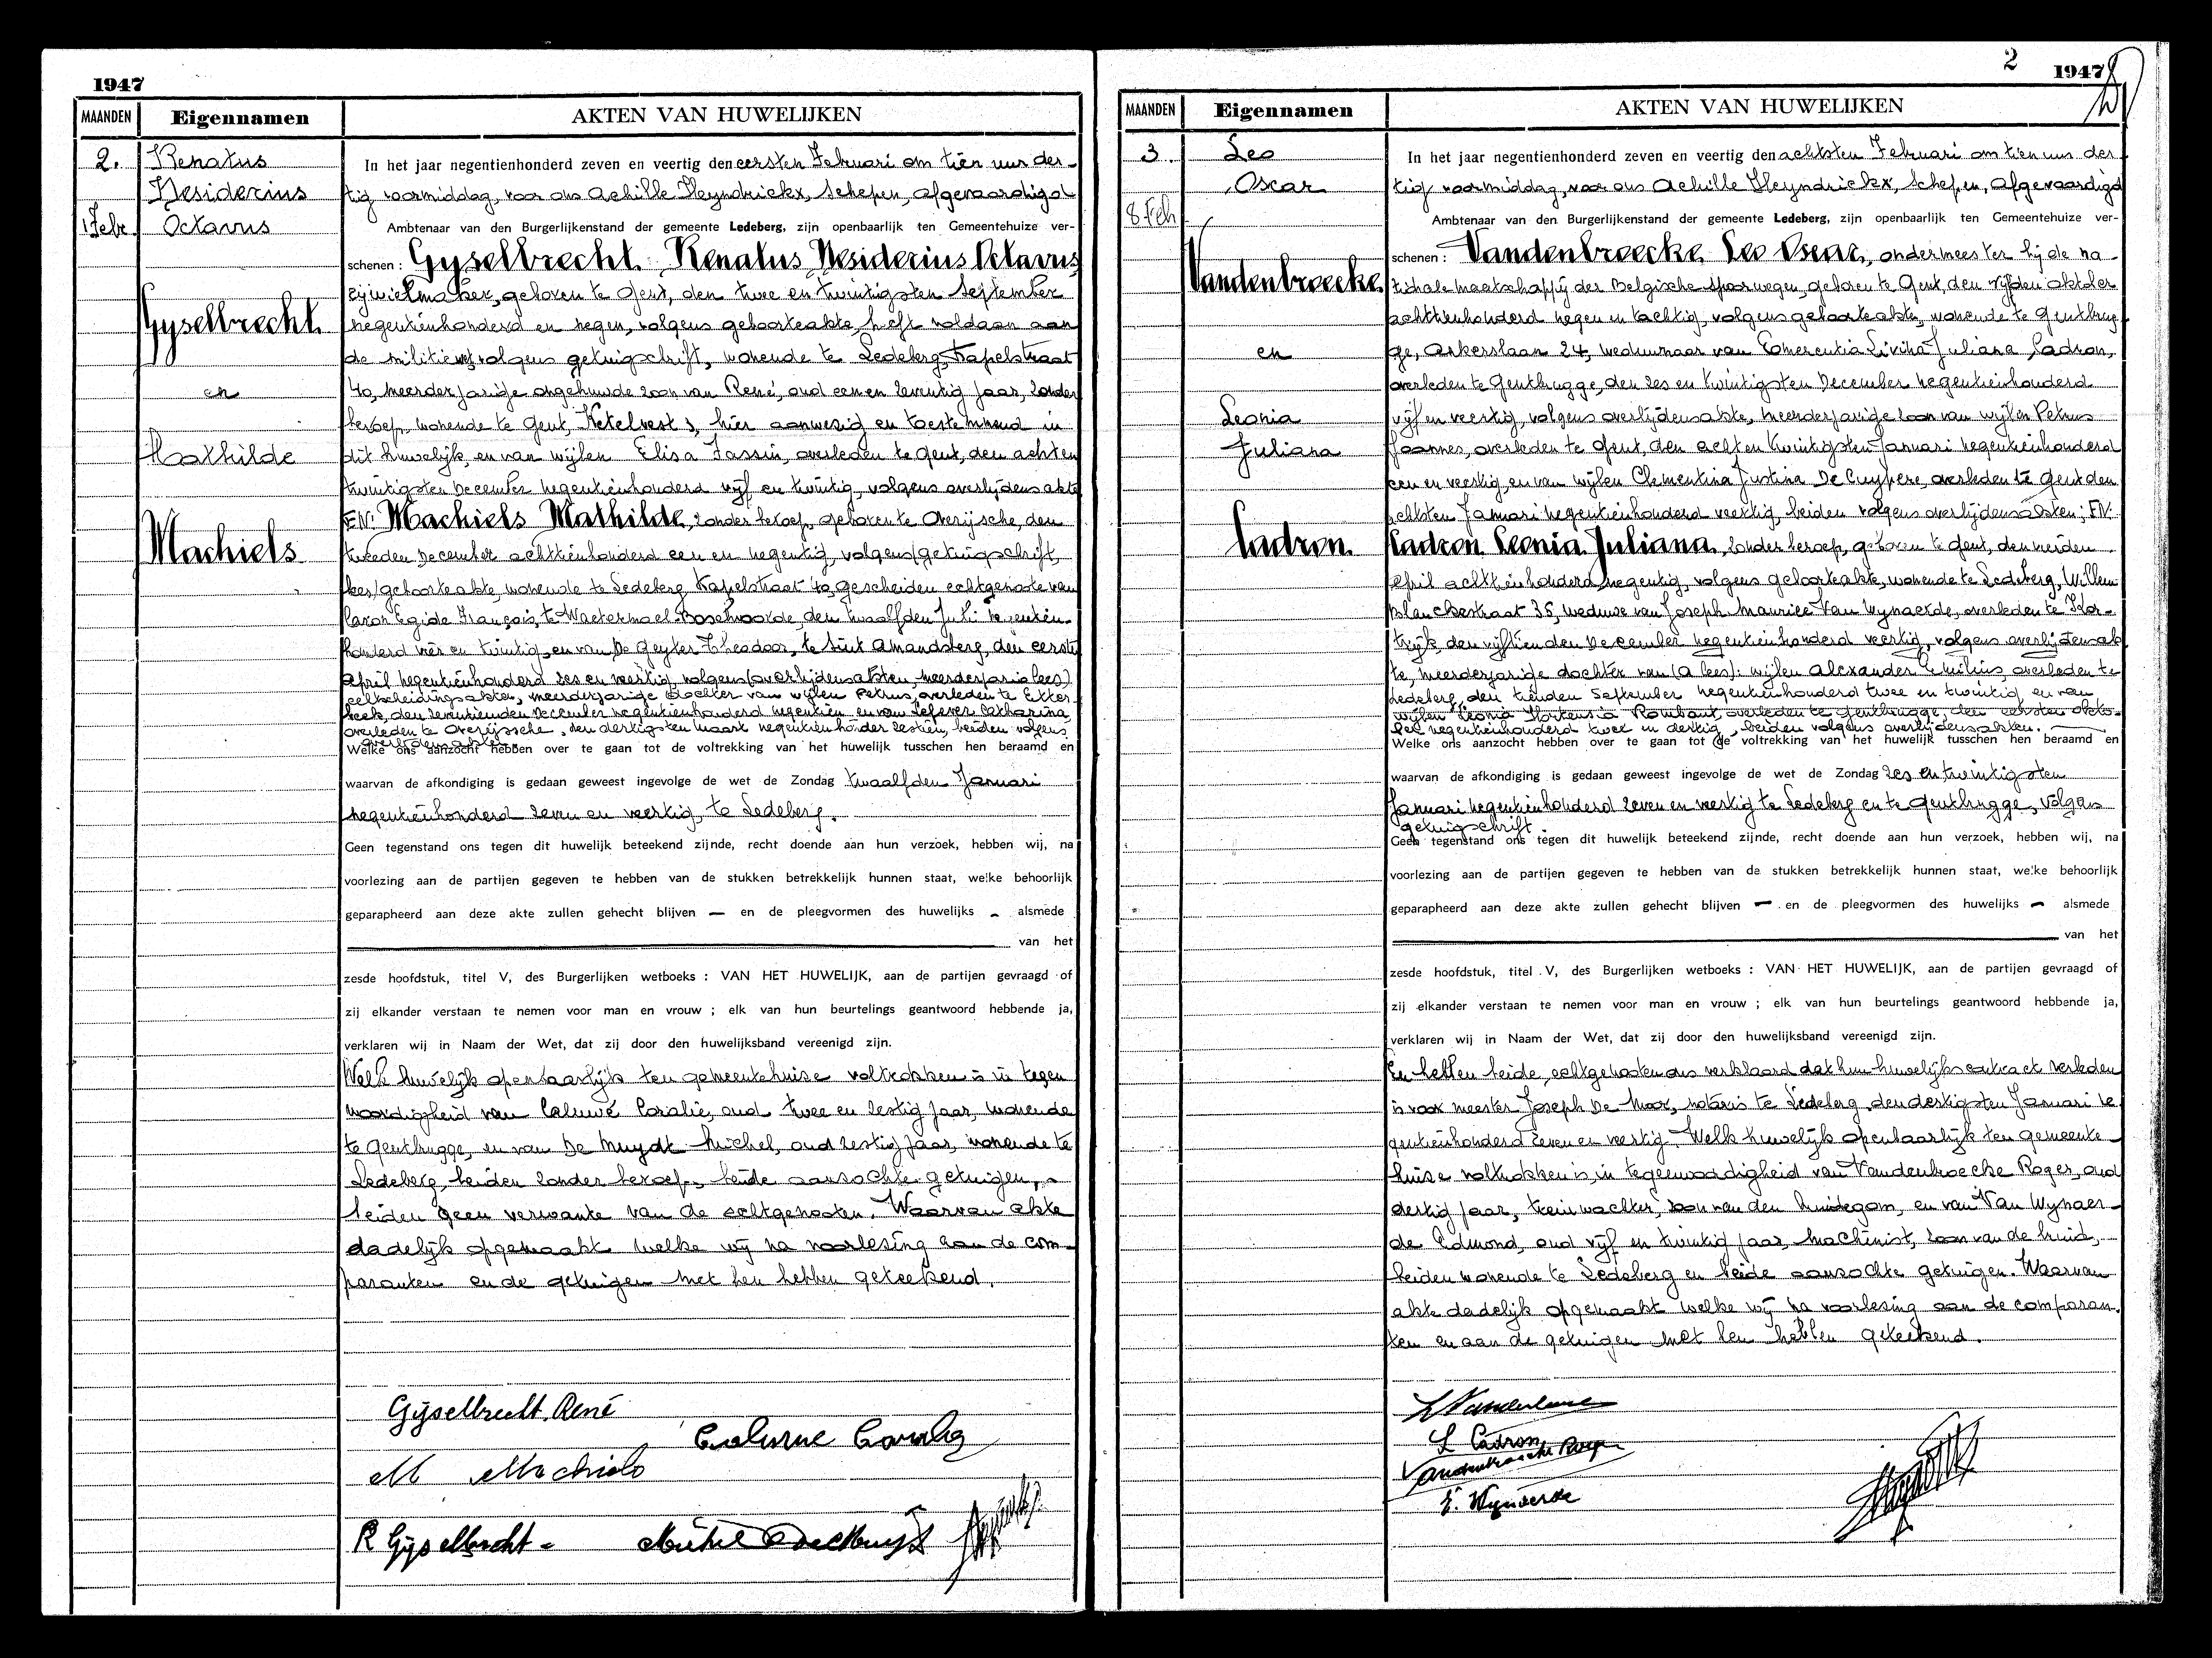 1947
MAANDEN
Eigennamen
AKTEN VAN HUWELIJKEN
2.
1 Febr.
Renatus
Desiderius
Octavus
Gyselbrecht
en
Mathilde
Machiels
In het jaar negentienhonderd zeven en veertig den eersten Februari om tien uur der-
tig voormiddag, voor ons Achille Heyndrickx, Schepen, afgevaardigd
Ambtenaar van den Burgerlijkenstand der gemeente Ledeberg, zijn openbaarlijk ten Gemeentehuize ver-
schenen : Gyselbrecht Renatus Desiderius Octavus
rijwielmaker, geboren te Gent, den twee en twintigsten September
negentienhonderd en negen, volgens geboorteakte, heeft voldaan aan
de militiewet volgens getuigschrift, wonende te Ledeberg, Kapelstraat
40, meerderjarige ongehuwde zoon van René, oud een en zeventig jaar, zonder
beroep, wonende te Gent, Ketelvest 3, hier aanwezig en toestemmend in
dit huwelijk, en van wijlen Elisa Fassin, overleden te Gent, den achten
twintigsten December negentienhonderd vijf en twintig, volgens overlijdensakte
EN: Machiels Mathilde, zonder beroep, geboren te Overijsche, den
tweeden December achttienhonderd een en negentig, volgens (getuigschrift,
lees) geboorteakte, wonende te Ledeberg, Kapelstraat 40, gescheiden echtgenote van
Caron Egide François, te Watermael-Boschvoorde, den twaalfden Juli negentien-
honderd vier en twintig, en van De Geyter Theodoor, te Sint Amandsberg, den eersten
April negentienhonderd zes en veertig, volgens (overlijdensakten, meerderjario lees)
echtscheidingsakten, meerderjarige dochter van wijlen Petrus, overleden te Etter-
beek, den zeventienden December negentienhonderd negentien en van Lefever Catharina
overleden te Overijssche, den dertigsten maart negentienhonder zestien, beiden volgens
overlijdensakten.
Welke ons aanzocht hebben over te gaan tot de voltrekking van het huwelijk tusschen hen beraamd en
waarvan de afkondiging is gedaan geweest ingevolge de wet de Zondag twaalfden Januari
negentienhonderd zeven en veertig, te Ledeberg.
Geen tegenstand ons tegen dit huwelijk beteekend zijnde, recht doende aan hun verzoek, hebben wij, na
voorlezing aan de partijen gegeven te hebben van de stukken betrekkelijk hunnen staat, welke behoorlijk
geparapheerd aan deze akte zullen gehecht blijven — en de pleegvormen des huwelijks - alsmede
van het
zesde hoofdstuk, titel V, des Burgerlijken wetboeks : VAN HET HUWELIJK, aan de partijen gevraagd of
zij elkander verstaan te nemen voor man en vrouw ; elk van hun beurtelings geantwoord hebbende ja,
verklaren wij in Naam der Wet, dat zij door den huwelijksband vereenigd zijn.
Welk huwelijk openbaarlijk ten gemeentehuise voltrokken is in tegen
woordigheid van Caluwé Coralie, oud twee en zestig jaar, wonende
te Gentbrugge, en van De Muydt Michel, oud zestig jaar, wonende te
Ledeberg, beiden zonder beroep, beide aanzochte getuigen,
beiden geen verwante van de echtgenooten. Waarvan akte
dadelijk opgemaakt welke wij na voorlezing aan de com-
paranten en de getuigen met hen hebben geteekend.
Gijselbrecht René
Caluwe Coralie
M Machiels
R Gijselbrecht
Michel DeMuydt
2
1947
MAANDEN
Eigennamen
AKTEN VAN HUWELIJKEN
3.
8 Feb
Leo
Oscar
Vandenbroecke
en
Leonia
Juliana
Cadron
In het jaar negentienhonderd zeven en veertig den achtsten Februari om tien uur der
tig voormiddag, voor ons Achille Heyndrickx, Schepen, afgevaardigd
Ambtenaar van den Burgerlijkenstand der gemeente Ledeberg, zijn openbaarlijk ten Gemeentehuize ver-
schenen : Vandenbroecke Leo Oscar, ondermeester bij de na-
tionale maatschappij der Belgische spoorwegen, geboren te Gent, den vijfden oktober
achttienhonderd negen en tachtig, volgens geboorteakte, wonende te Gentbrug-
ge, Askerslaan 24, weduwnaar van Emerentia Livina Juliana Cadron,
overleden te Gentbrugge, den zes en twintigsten December negentienhonderd
vijf en veertig, volgens overlijdensakte, meerderjarige zoon van wijlen Petrus
Joannes, overleden te Gent, den acht en twintigsten Januari negentienhonderd
een en veertig, en van wijlen Clementina Justina De Cuypere, overleden te Gent den
achtsten Januari negentienhonderd veertig, beiden volgens overlijdensakten; EN:
Cadron Leonia Juliana, zonder beroep, geboren te Gent, den
April achttienhonderd negentig, volgens geboorteakte, wonende te Ledeberg, Willem
Blanckestraat 35, weduwe van Joseph Maurice Van Wynaerde, overleden te Kor-
trijk, den vijftienden December negentienhonderd veertig, volgens overlijdensak
te, meerderjarige dochter van (a lees): wijlen Alexander Emilius, overleden te
Ledeberg, den tienden September negentienhonderd twee en twintig en van
wijlen Leonia Hortensia Rombaut, overleden te Gentbrugge, den eersten okto-
ber negentienhonderd twee en dertig, beiden volgens overlijdensakten.
Welke ons aanzocht hebben over te gaan tot de voltrekking van het huwelijk tusschen hen beraamd en
waarvan de afkondiging is gedaan geweest ingevolge de wet de Zondag zes en twintigsten
Januari negentienhonderd zeven en veertig te Ledeberg en te Gentbrugge, volgens
getuigschrift.
Geen tegenstand ons tegen dit huwelijk beteekend zijnde, recht doende aan hun verzoek, hebben wij, na
voorlezing aan de partijen gegeven te hebben van de stukken betrekkelijk hunnen staat, welke behoorlijk
geparapheerd aan deze akte zullen gehecht blijven — en de pleegvormen des huwelijks - alsmede
van het
zesde hoofdstuk, titel V, des Burgerlijken wetboeks : VAN HET HUWELIJK, aan de partijen gevraagd of
zij elkander verstaan te nemen voor man en vrouw ; elk van hun beurtelings geantwoord hebbende ja,
verklaren wij in Naam der Wet, dat zij door den huwelijksband vereenigd zijn.
En hebben beide echtgenooten ons verklaard dat hun huwelijkscontract verleden
is voor meester Joseph De Moor, notaris te Ledeberg, den dertigsten Januari ne
gentienhonderd zeven en veertig. Welk huwelijk openbaarlijk ten gemeente-
huise voltrokken is, in tegenwoordigheid van Vandenbroecke Roger, oud
dertig jaar, treinwachter, zoon van den bruidegom, en van Van Wynaer-
de Edmond, oud vijf en twintig jaar, machinist, zoon van de bruid,
beiden wonende te Ledeberg en beide aanzochte getuigen. Waarvan
akte dadelijk opgemaakt welke wij na voorlesing aan de comparan
ten en aan de getuigen met hen hebben geteekend.
L Cadron
Vandenbroecke Roger
E. Wynaerde